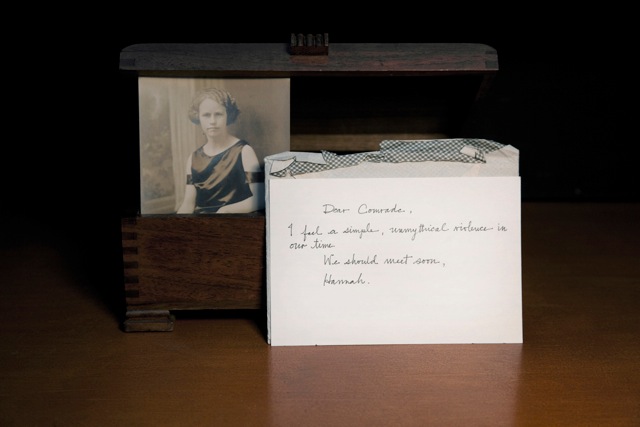 Dear Comrade,
I feel a simple, unmythical violence in
our time
We should meet soon,
Hannah.